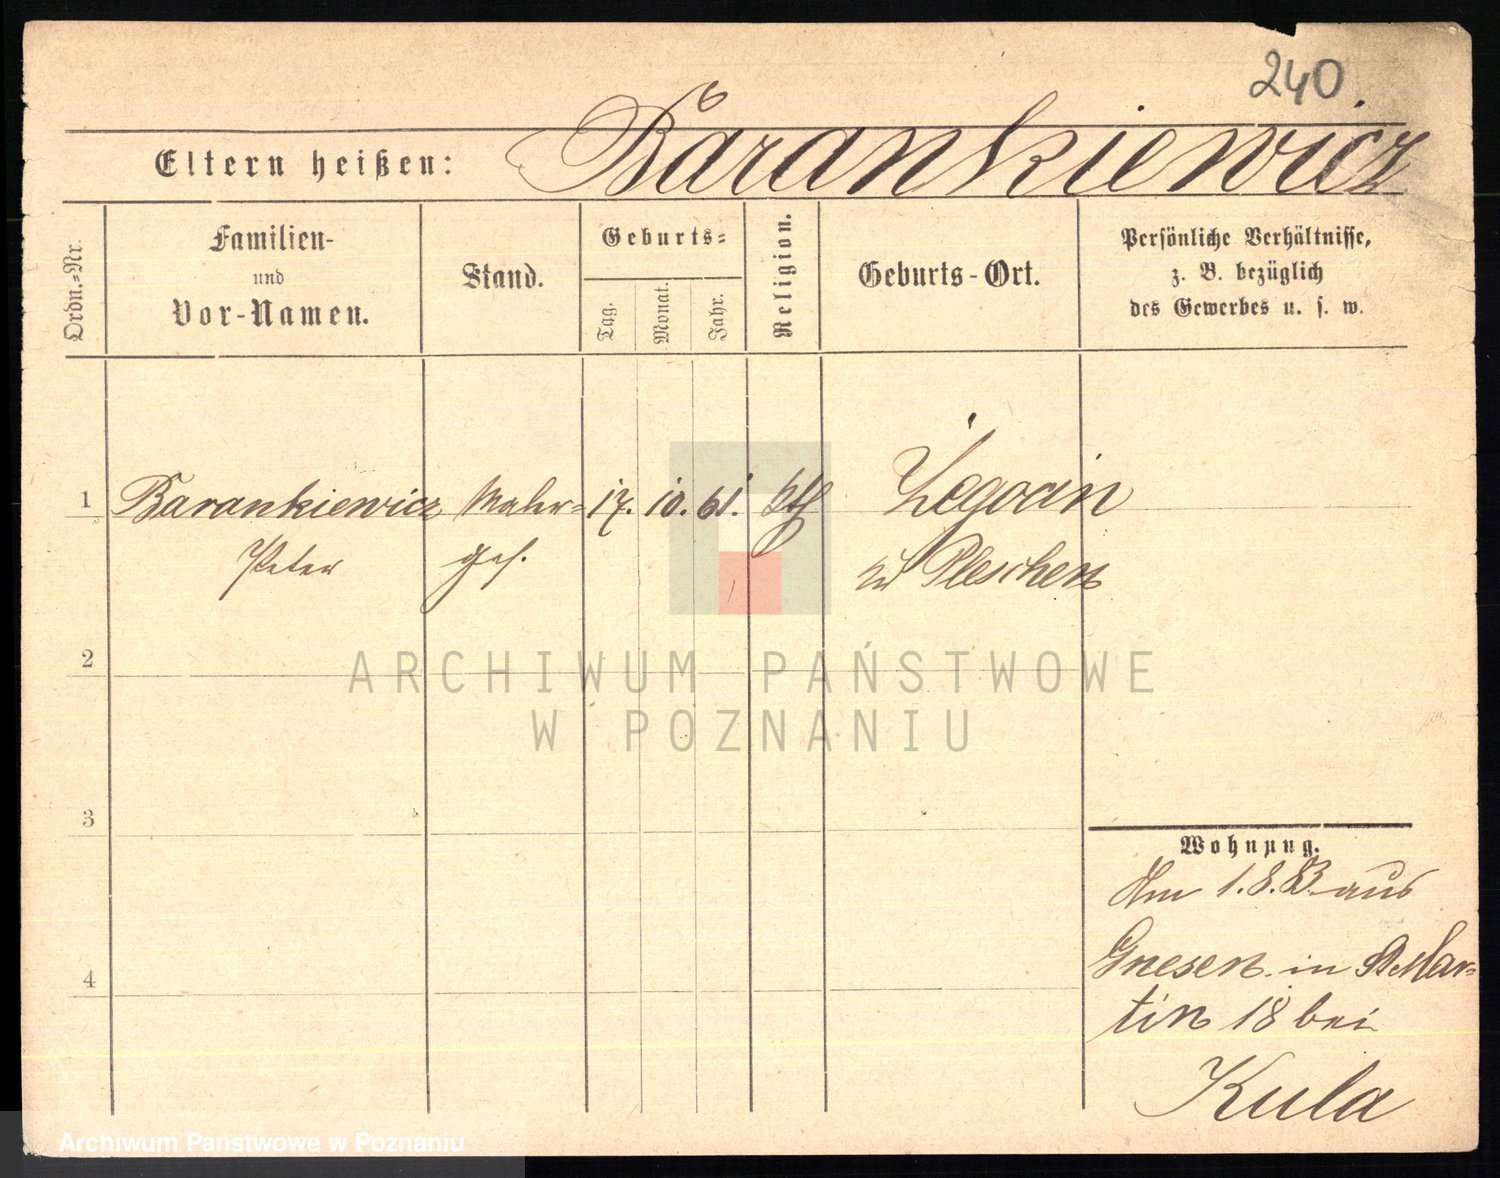 240
Eltern heißen: Barankiewicz
Ordn.-Nr.
Familien-
und
Vor-Namen.
Stand.
Geburts=
Tag.
Monat.
Jahr.
Religion.
Geburts-Ort.
Persönliche Verhältnisse,
z. B. bezüglich
des Gewerbes u. s. w.
1 Barankiewicz 17. 10. 61. kth
Peter Ges. zu Pleschen
2
ARCHIWUM PAŃSTWOWE
W POZNANIU
3
4
Wohnung.
Am 1. 8. aus
Gnesen in St Mar=
tin 18 bei
Kula
Archiwum Państwowe w Poznaniu